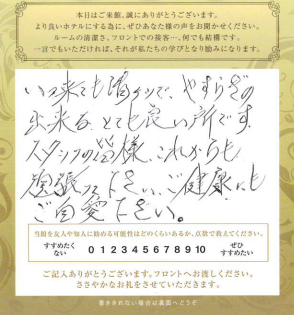 本日はご来館、誠にありがとうございます。
より良いホテルにする為に、ぜひあなた様の声をお聞かせください。
ルームの清潔さ、フロントでの接客…、何でも結構です。
一言でもいただければ、それが私たちの学びとなり励みになります。
いつ来ても
やすらぎの
出来る、とても良い所です。
スタッフの皆様、これからも
頑張って下さい、ご健康にも
ご自愛下さい。
当館を友人や知人に勧める可能性はどのくらいあるか、点数で教えてください。
すすめたくない 0 1 2 3 4 5 6 7 8 9 10 ぜひすすめたい
ご記入ありがとうございます。フロントへお渡しください。
ささやかなお礼をさせていただきます。
書ききれない場合は裏面へどうぞ